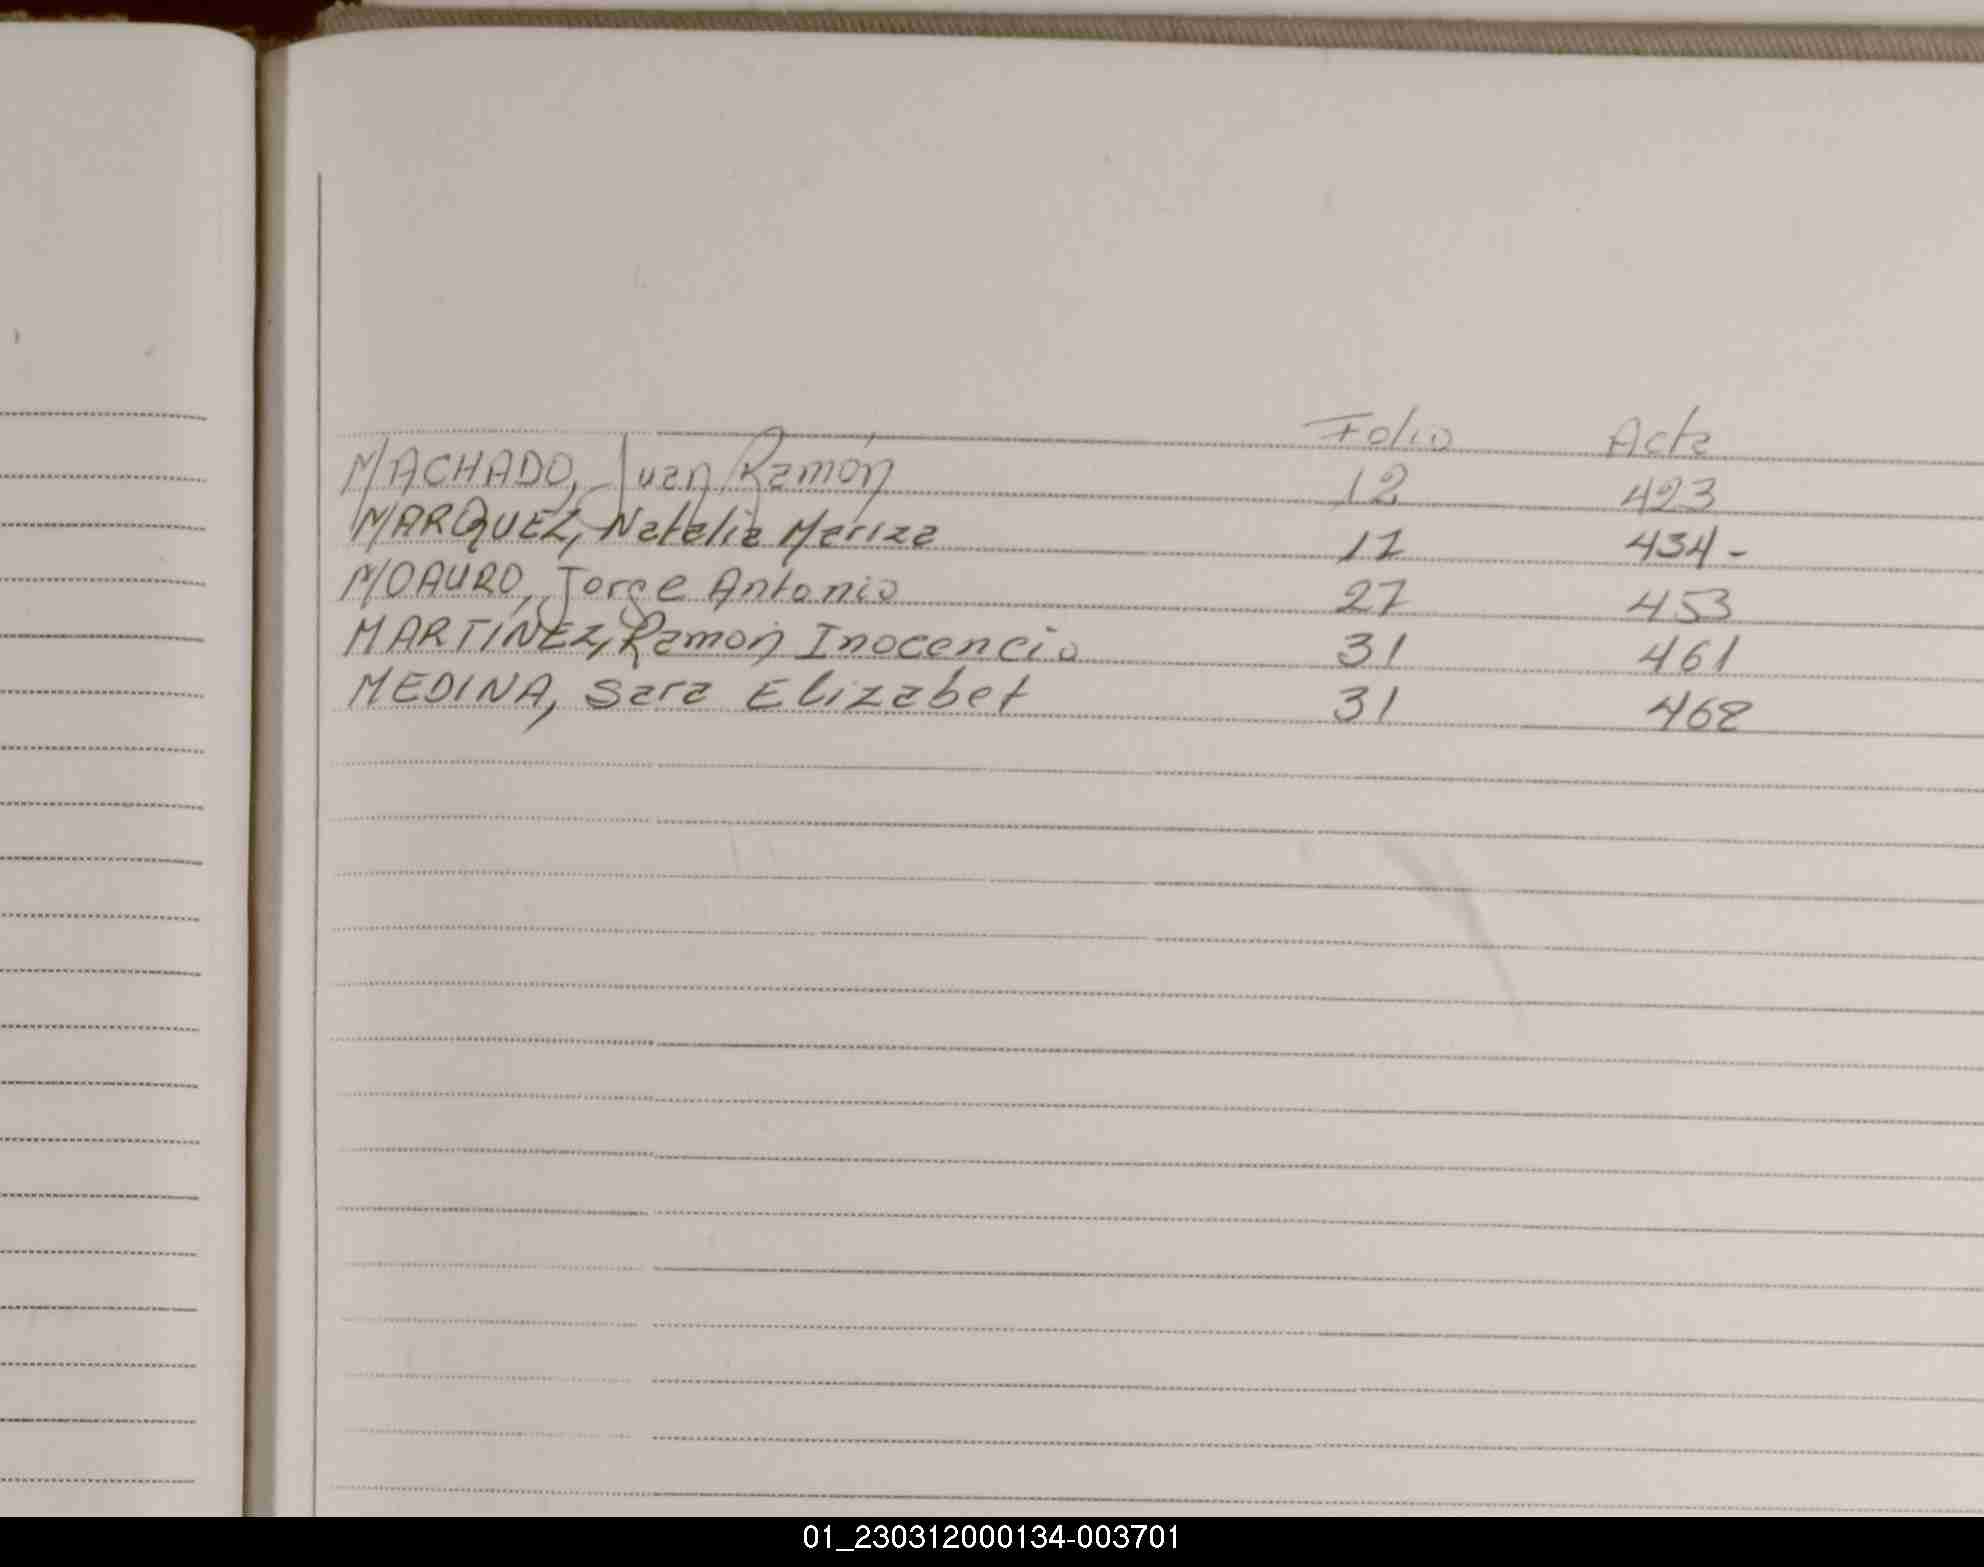 Folio Acta
MACHADO, Juan Ramón 12 423
MARQUEZ, Natalia Mariza 17 434-
MOAURO, Jorge Antonio 27 453
MARTINEZ, Ramón Inocencio 31 461
MEDINA, Sara Elizabet 31 462
01_230312000134-003701